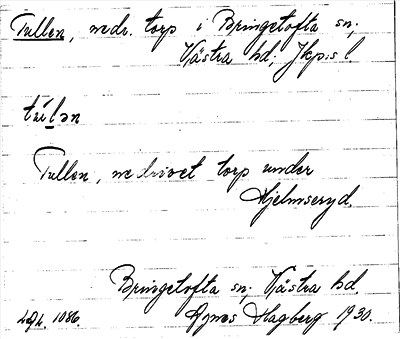 Tullen, nedr. torp i Bringetofta sn;
Västra hd; Jkp:s l.
Tullen, nedrivet torp under
Hjelmseryd.
Bringetofta sn; Västra hd.
1086. Agnes Hagberg 1930.